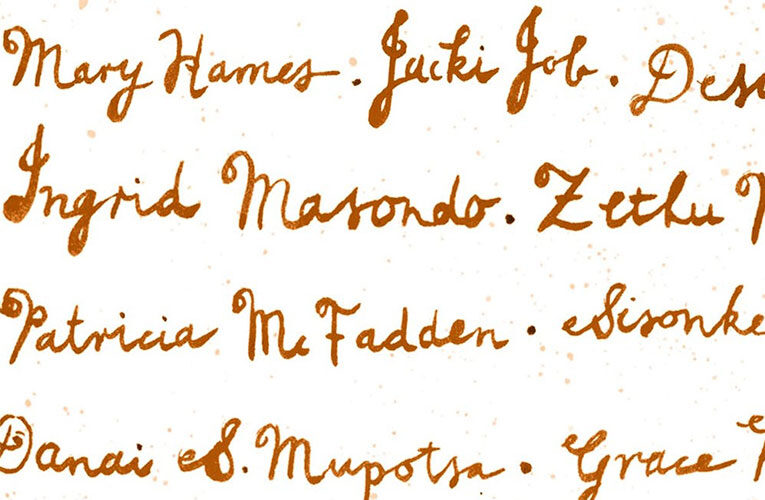 Mary Hames . Jacki Job . Des
Ingrid Masondo . Zethu
Patricia McFadden . Sisonke
Danai S. Mupotsa . Grace